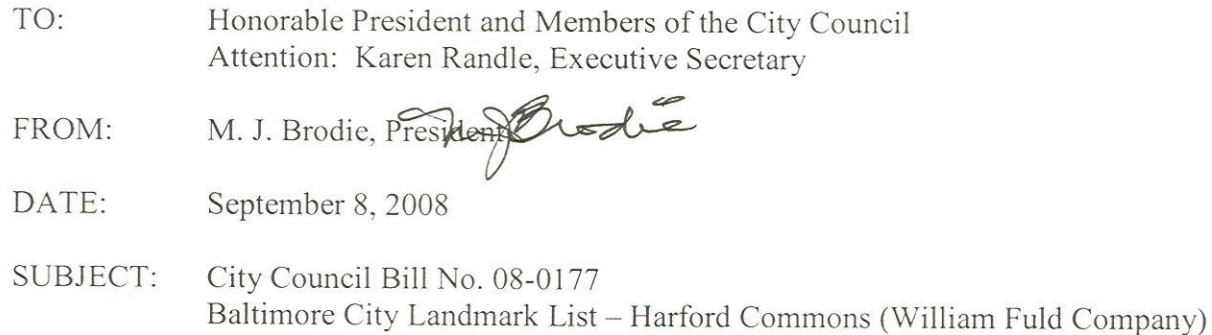 TO: Honorable President and Members of the City Council
Attention: Karen Randle, Executive Secretary
FROM: M. J. Brodie, President M J Brodie
DATE: September 8, 2008
SUBJECT: City Council Bill No. 08-0177
Baltimore City Landmark List – Harford Commons (William Fuld Company)